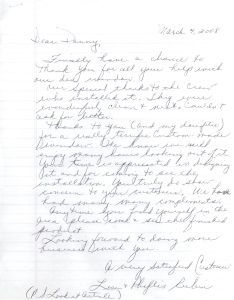 March 4, 2008
Dear Danny,
Finally have a chance to
thank you for all your help with
our new
Our special thanks to the crew
who installed it. They were
wonderful, clean & neat. Couldn't
ask for better.
Thanks to you (and my
for a really terrific custom made
We know we will
enjoy many
Your time is appreciated in designing
it and for coming to see the
installation. You truly do show
concern to your customers. We
had many many compliments.
Anytime you find yourself in the
area please come & see the finished
product.
Looking forward to doing more
business with you.
A very satisfied customer
Leon & Phyllis
(P.S. Look at